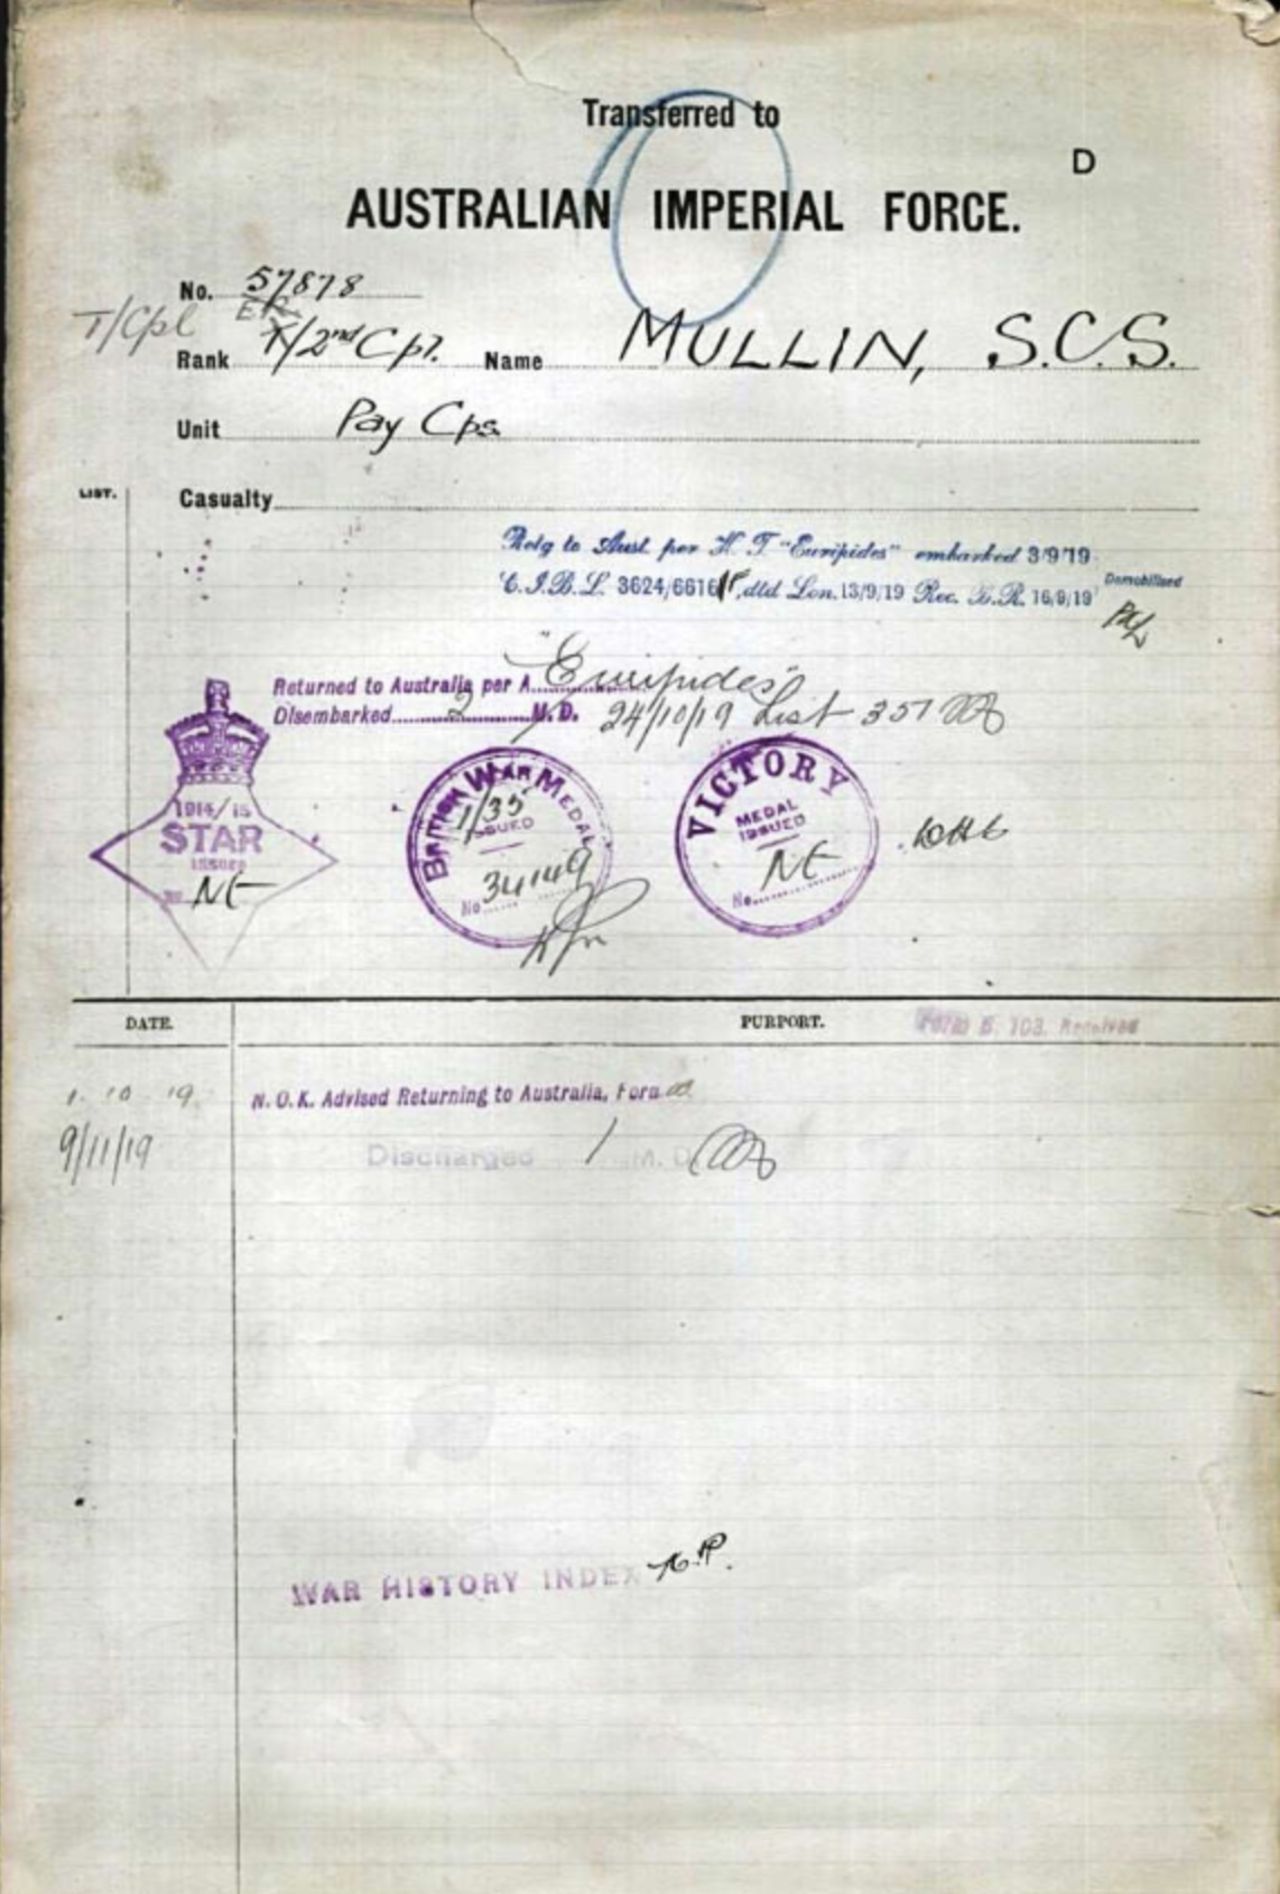 Transferred to
D
AUSTRALIAN IMPERIAL FORCE.
No. 57878
T/Cpl
Rank T/2nd Cpl. Name MULLIN, S.C.S.
Unit Pay Cps.
LIST.
Casualty
Retg to Aust. per H. T. "Euripides" embarked 3/9/19
C.I.B.L. 3624/6616 dtd Lon. 13/9/19 Rec. B.R. 16/9/19
Demobilised
Returned to Australia per A. "Euripides"
Disembarked 2 M.D. 24/10/19 List 351
1914/15
STAR
ISSUED
NE
BRITISH WAR MEDAL
1/35
ISSUED
No. 34149
VICTORY
MEDAL
ISSUED
NE
No.
DATE.
PURPORT.
Form B. 103. Received
1. 10. 19. N.O.K. Advised Returning to Australia, Form
9/11/19 Discharged 1 M.D.
WAR HISTORY INDEX